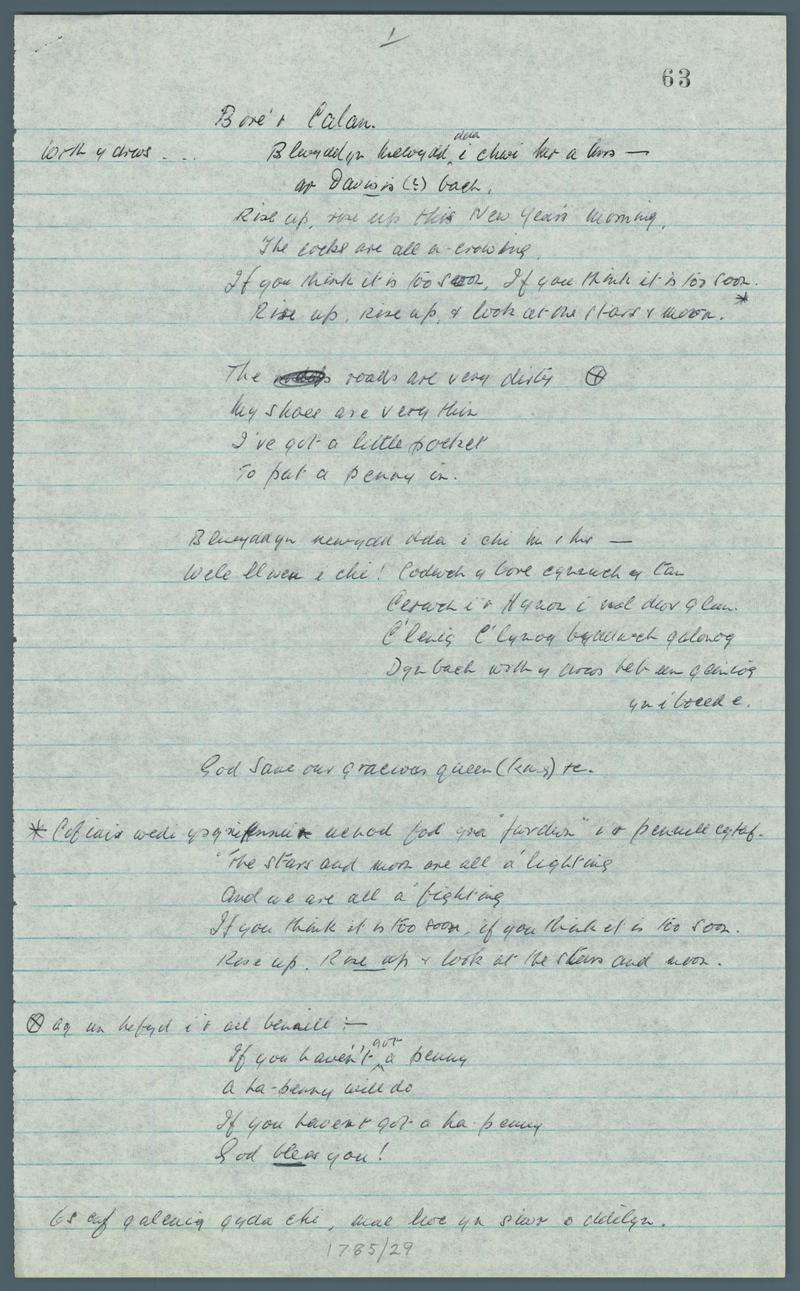 1
63
Bore'r Calan.
Wrth y drws ...
Blwyddyn newydd dda i chwi
ar Davisis (?) bach.
Rise up, rise up this New Year's morning,
The cocks are all a-crowing.
If you think it is too soon, If you think it is too soon.
Rise up, rise up, & look at the stars & moon. *
The roads are very dirty ⊗
My shoes are very thin
I've got a little pocket
To put a penny in.
Blwyddyn newydd dda i chi
Wele llwen i chi! Codwch y bore cynnwch y tân
Cerwch i'r ffynon i mol dwr glan.
C'lenig C'lynog byddwch galonog
Dyn bach wrth y drws heb un geiniog
yn i boced e.
God save our gracious queen (king) &c.
* Cofiais wedi ysgrifennu uchod fod yna "fwrdwn" i'r pennill cyntaf.
"The stars and moon are all a' lighting
And we are all a' fighting
If you think it is too soon, if you think it is too soon.
Rise up, Rise up & look at the stars and moon.
⊗ ag un hefyd i'r ail bennill :—
If you haven't got a penny
A ha-penny will do
If you havent got a ha-penny
God bless you!
Os caf galenig gyda chi, mae lwc yn siwr o ddilyn.
1785/29